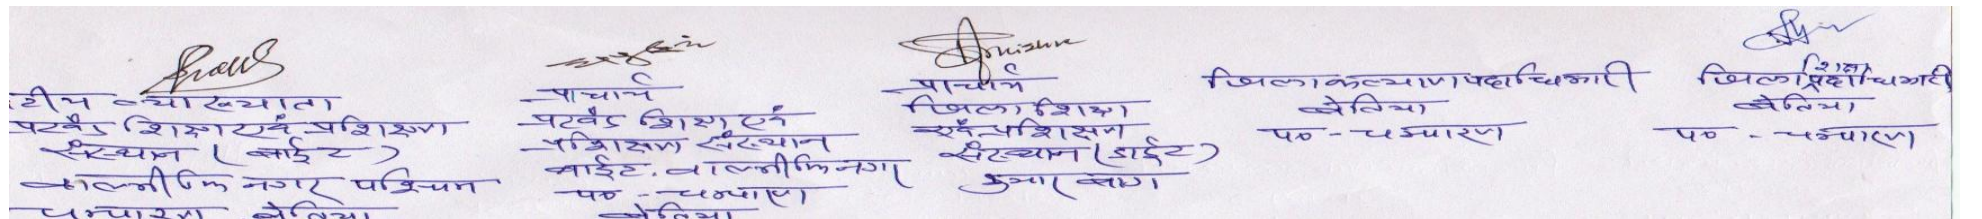 व्याख्याता
प्रखंड शिक्षा एवं प्रशिक्षण
संस्थान (बाईट)
वाल्मीकि नगर पश्चिम
चम्पारण बेतिया
प्राचार्य
प्रखंड शिक्षा एवं
प्रशिक्षण संस्थान
बाईट. वाल्मीकि नगर
प० - चम्पारण
बेतिया
प्राचार्य
जिला शिक्षा
एवं प्रशिक्षण
संस्थान (डाईट)
कुमार बाग
जिला कल्याण पदाधिकारी
बेतिया
प० - चम्पारण
जिला शिक्षा पदाधिकारी
बेतिया
प० - चम्पारण